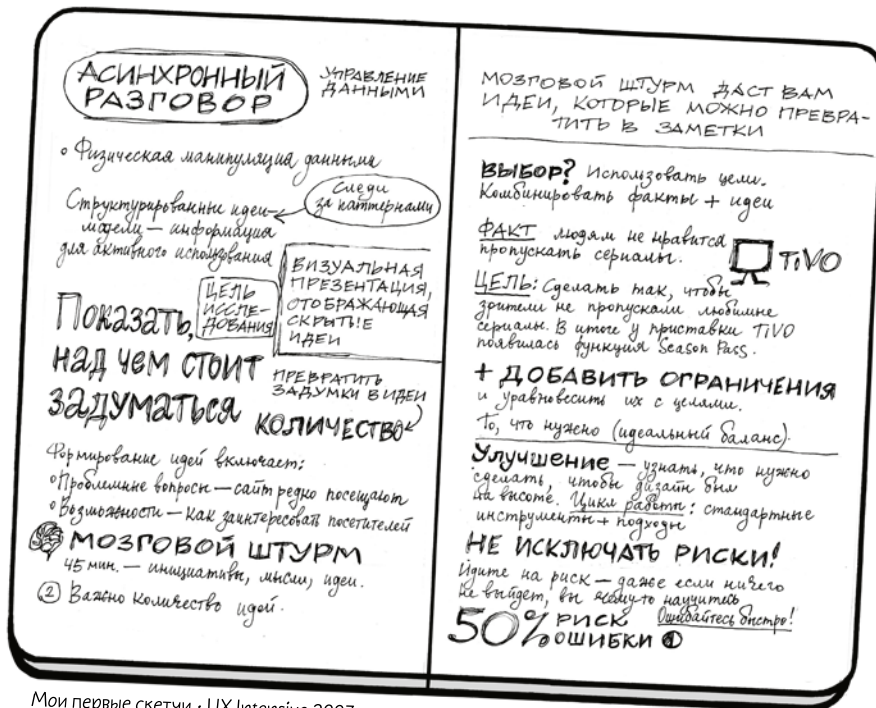 АСИНХРОННЫЙ
РАЗГОВОР
УПРАВЛЕНИЕ
ДАННЫМИ
• Физическая манипуляция данными
Следи
за паттернами
Структурированные идеи-
модели — информация
для активного использования
ЦЕЛЬ
ИССЛЕ-
ДОВАНИЯ
ВИЗУАЛЬНАЯ
ПРЕЗЕНТАЦИЯ,
ОТОБРАЖАЮЩАЯ
СКРЫТЫЕ
ИДЕИ
Показать,
над чем стоит
задуматься
ПРЕВРАТИТЬ
ЗАДУМКИ В ИДЕИ
КОЛИЧЕСТВО
Формирование идей включает:
• Проблемные вопросы — сайт редко посещают
• Возможности — как заинтересовать посетителей
МОЗГОВОЙ ШТУРМ
45 мин. — инициативы, мысли, идеи.
② Важно количество идей.
МОЗГОВОЙ ШТУРМ ДАСТ ВАМ
ИДЕИ, КОТОРЫЕ МОЖНО ПРЕВРА-
ТИТЬ В ЗАМЕТКИ
ВЫБОР? Использовать цели.
Комбинировать факты + идеи
ФАКТ людям не нравится
пропускать сериалы.
TiVO
ЦЕЛЬ: Сделать так, чтобы
зрители не пропускали любимые
сериалы. В итоге у приставки TiVO
появилась функция Season Pass.
+ ДОБАВИТЬ ОГРАНИЧЕНИЯ
и уравновесить их с целями.
То, что нужно (идеальный баланс).
Улучшение — узнать, что нужно
сделать, чтобы дизайн был
на высоте. Цикл работы: стандартные
инструменты + подходы
НЕ ИСКЛЮЧАТЬ РИСКИ!
Идите на риск — даже если ничего
не выйдет, вы чему-то научитесь
Ошибайтесь быстро!
50% РИСК
ОШИБКИ ①
Мои первые скетчи • UX Intensive 2007